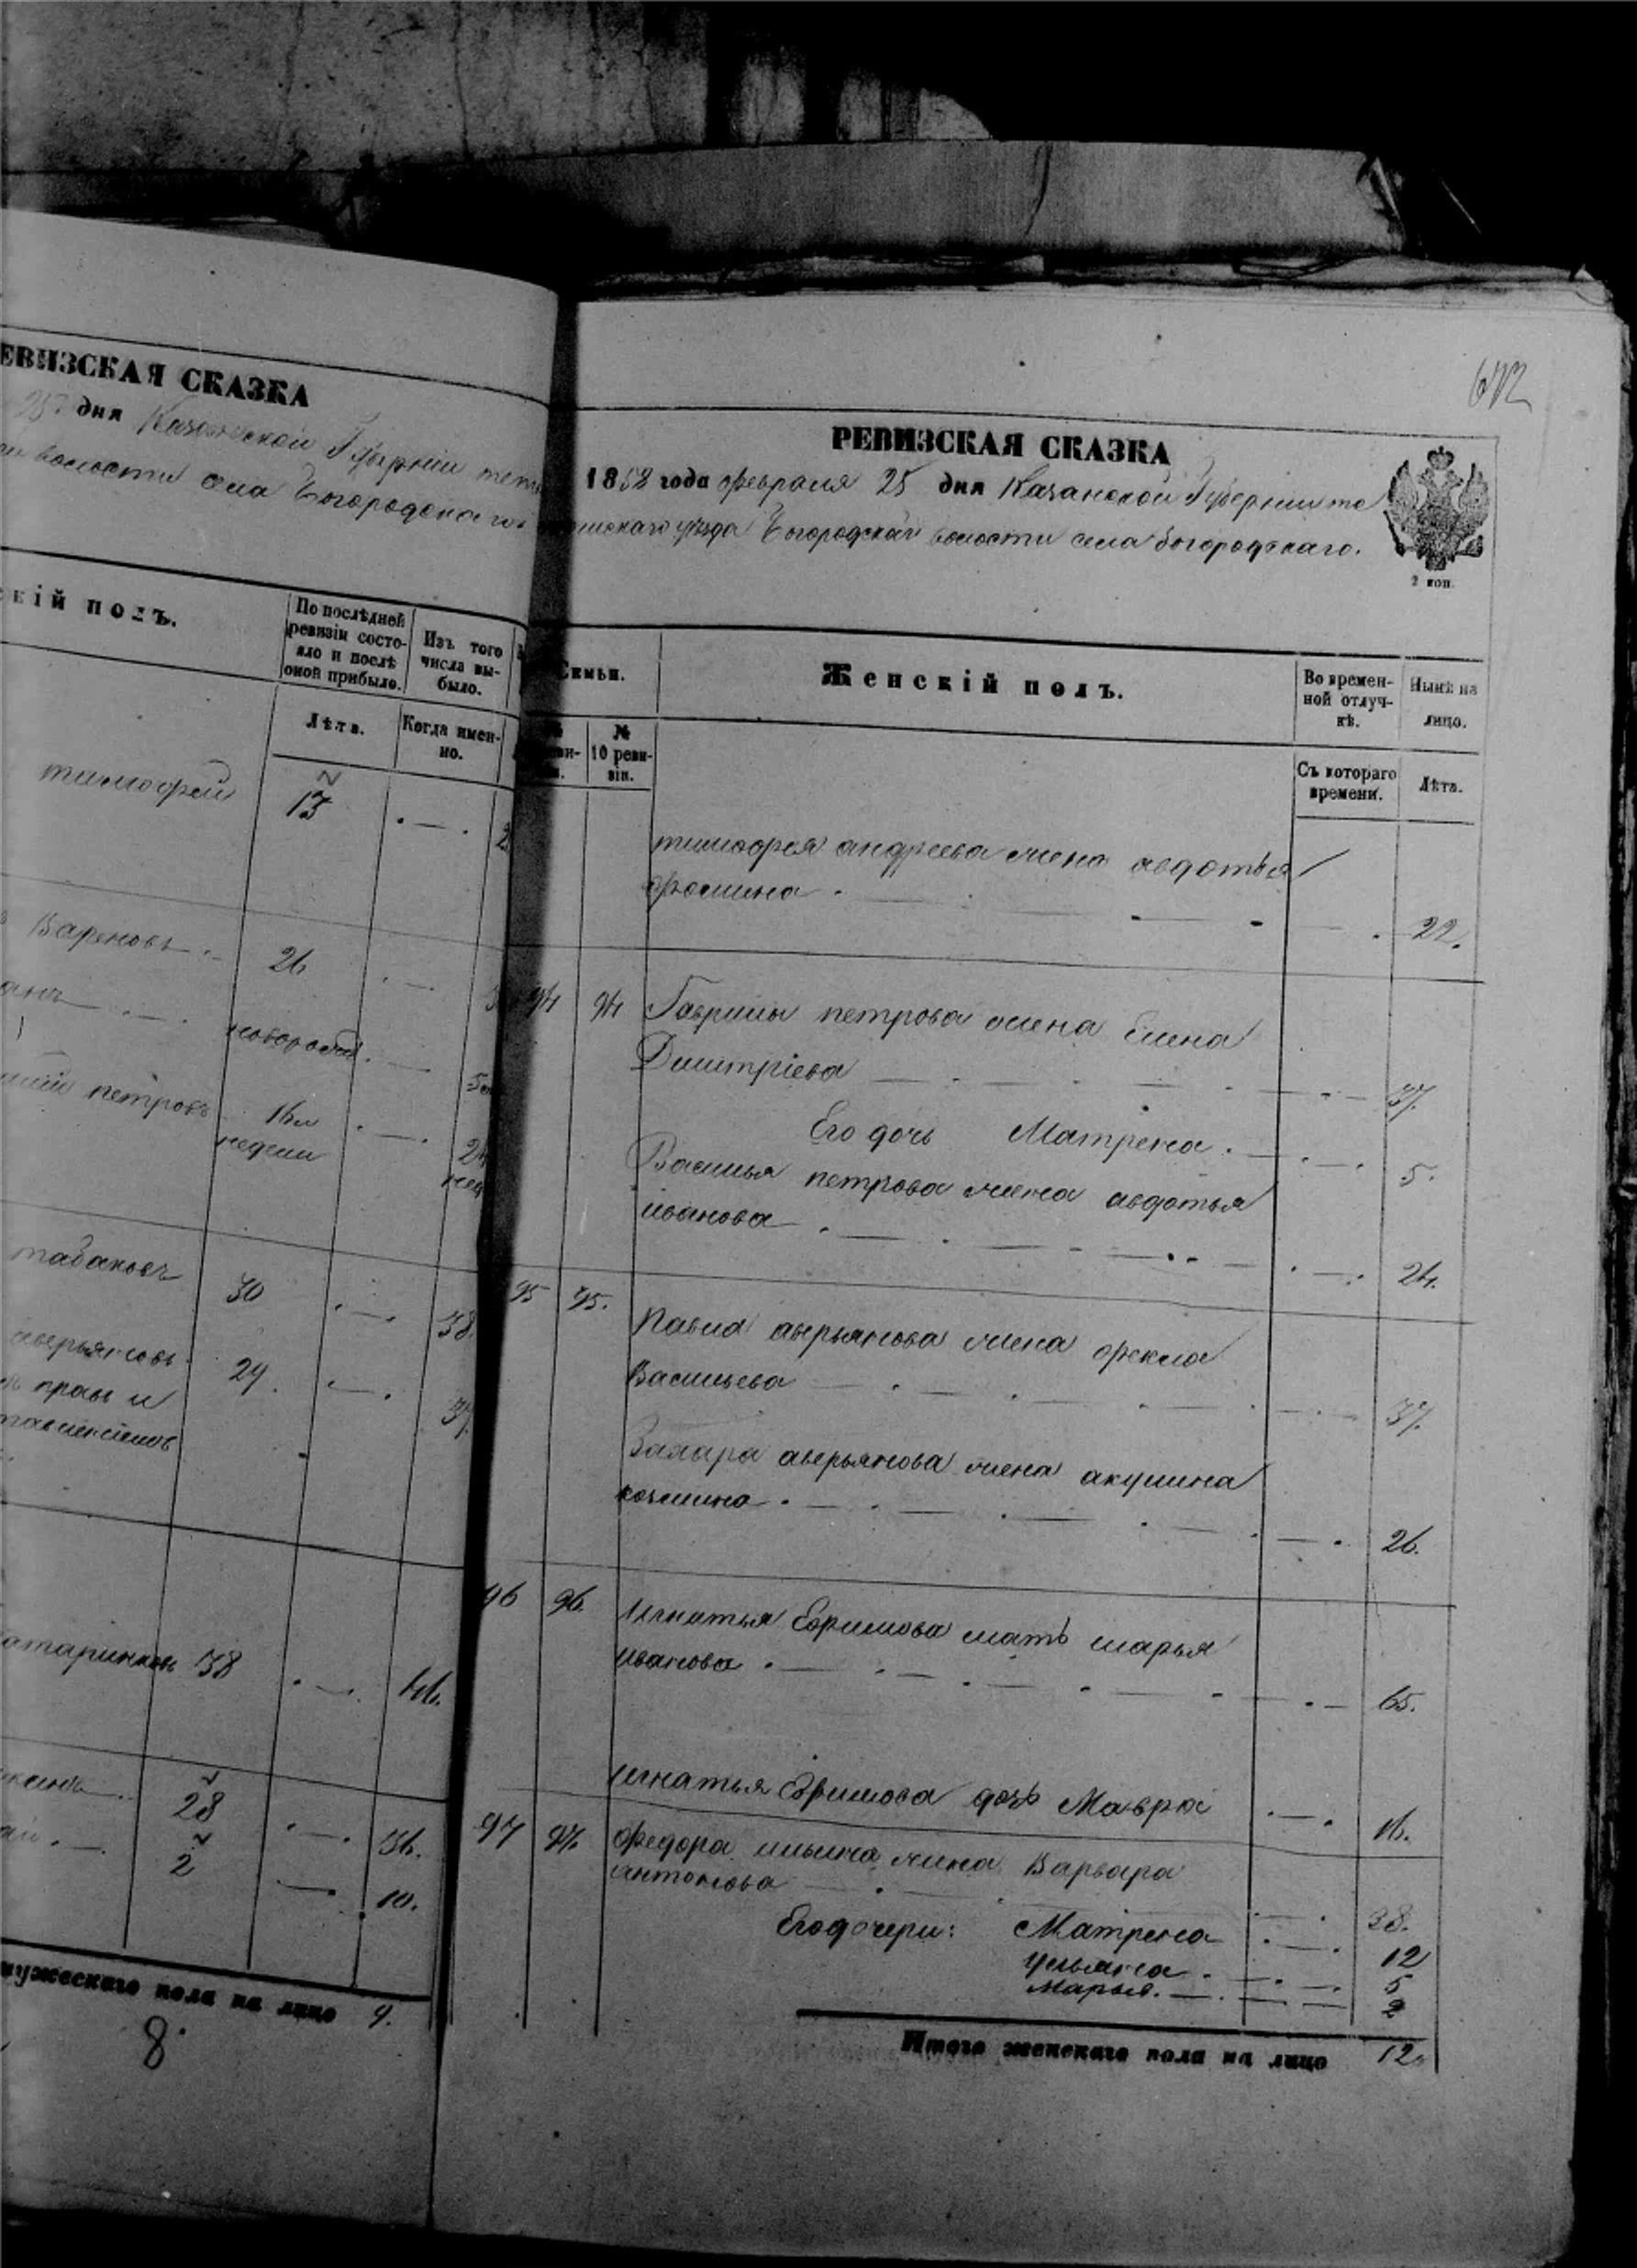 ЕВИЗСКАЯ СКАЗКА
25 дня Казанской Губернiи тетю
волости села Богородскаго
скiй полъ.
По послѣдней ревизiи состо-
яло и послѣ
оной прибыло.
Изъ того
числа вы-
было.
Лѣта.
Когда имен-
но.
тимофей 13
Вареновъ 26
новорожд.
петровъ 16
недели
табаковъ 30 38.
аверьяновъ 29. 37.
38 46.
28 36.
2 10.
мужескаго пола на лицо 9.
8
642
РЕВИЗСКАЯ СКАЗКА
1858 года февраля 25 дня Казанской Губернiи те
тюшскаго уѣзда Богородской волости села богородскаго.
2 коп.
Семьи.
Женскiй полъ.
Во времен-
ной отлуч-
кѣ.
Нынѣ на
лицо.
№
10 реви-
зiи.
Съ котораго
времени.
Лѣта.
тимофея андреева жена авдотья
фомина 22.
94 94 Гаврилы петрова жена Елена
Дмитрiева 37.
Его дочь Матрена. 5.
Василья петрова жена авдотья
иванова 24.
95 95. Павла аверьянова жена фекла
Васильева 37.
Захара аверьянова жена акулина
козмина 26.
96 96. игнатья Ефимова мать марья
иванова 65.
игнатья Ефимова дочь Мавра 16.
97 97. федора ильина жена Варвара
антонова 38.
Его дочери: Матрена 12
ульяна 5
Марья. 2
Итого женскаго пола на лицо 12.